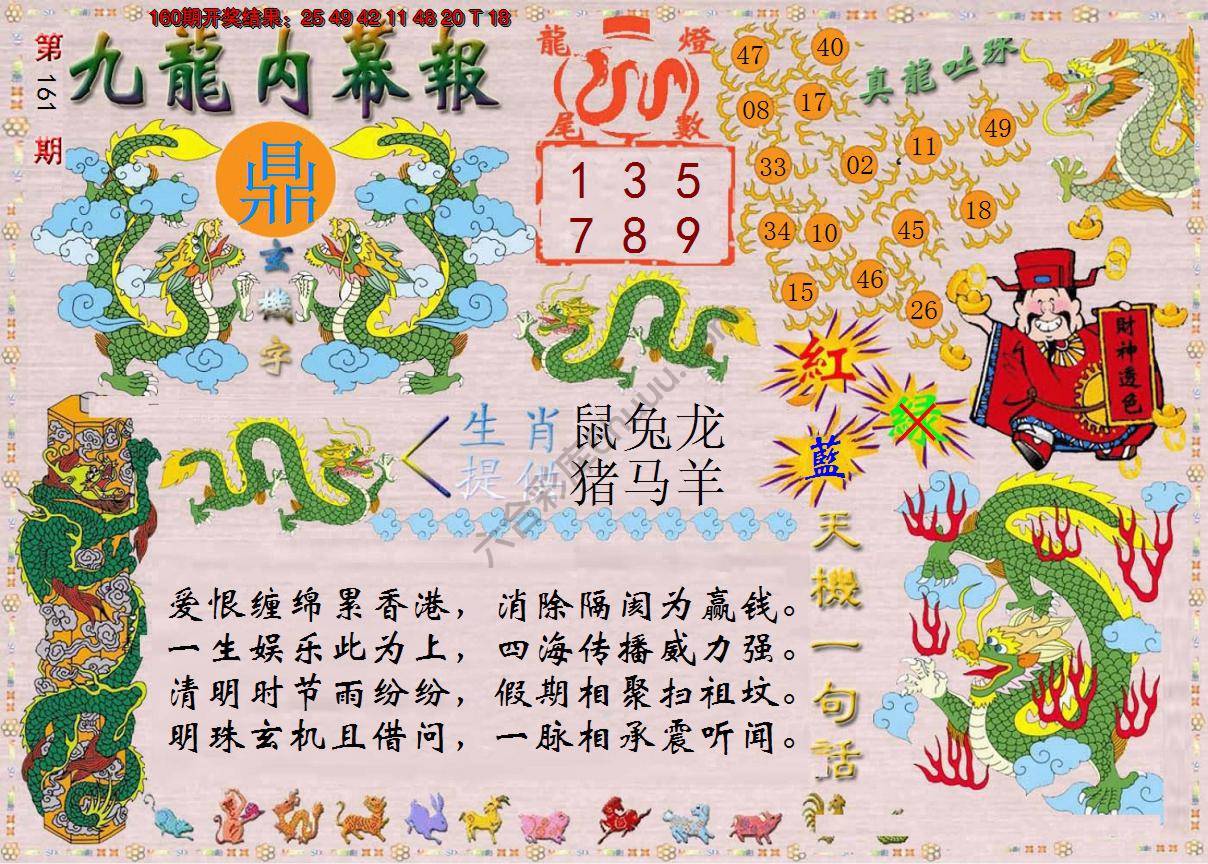 160期开奖结果：25 49 42 11 48 20 T 18
第161期
九龍内幕報
鼎
玄機字
龍燈
尾數
1 3 5
7 8 9
真龍吐珠
47 40
08 17
49
11
33 02
18
34 10 45
46
15
26
紅
綠
藍
財神透色
生肖 鼠兔龙
提供 猪马羊
天機一句話
爱恨缠绵累香港，消除隔阂为赢钱。
一生娱乐此为上，四海传播威力强。
清明时节雨纷纷，假期相聚扫祖坟。
明珠玄机且借问，一脉相承震听闻。